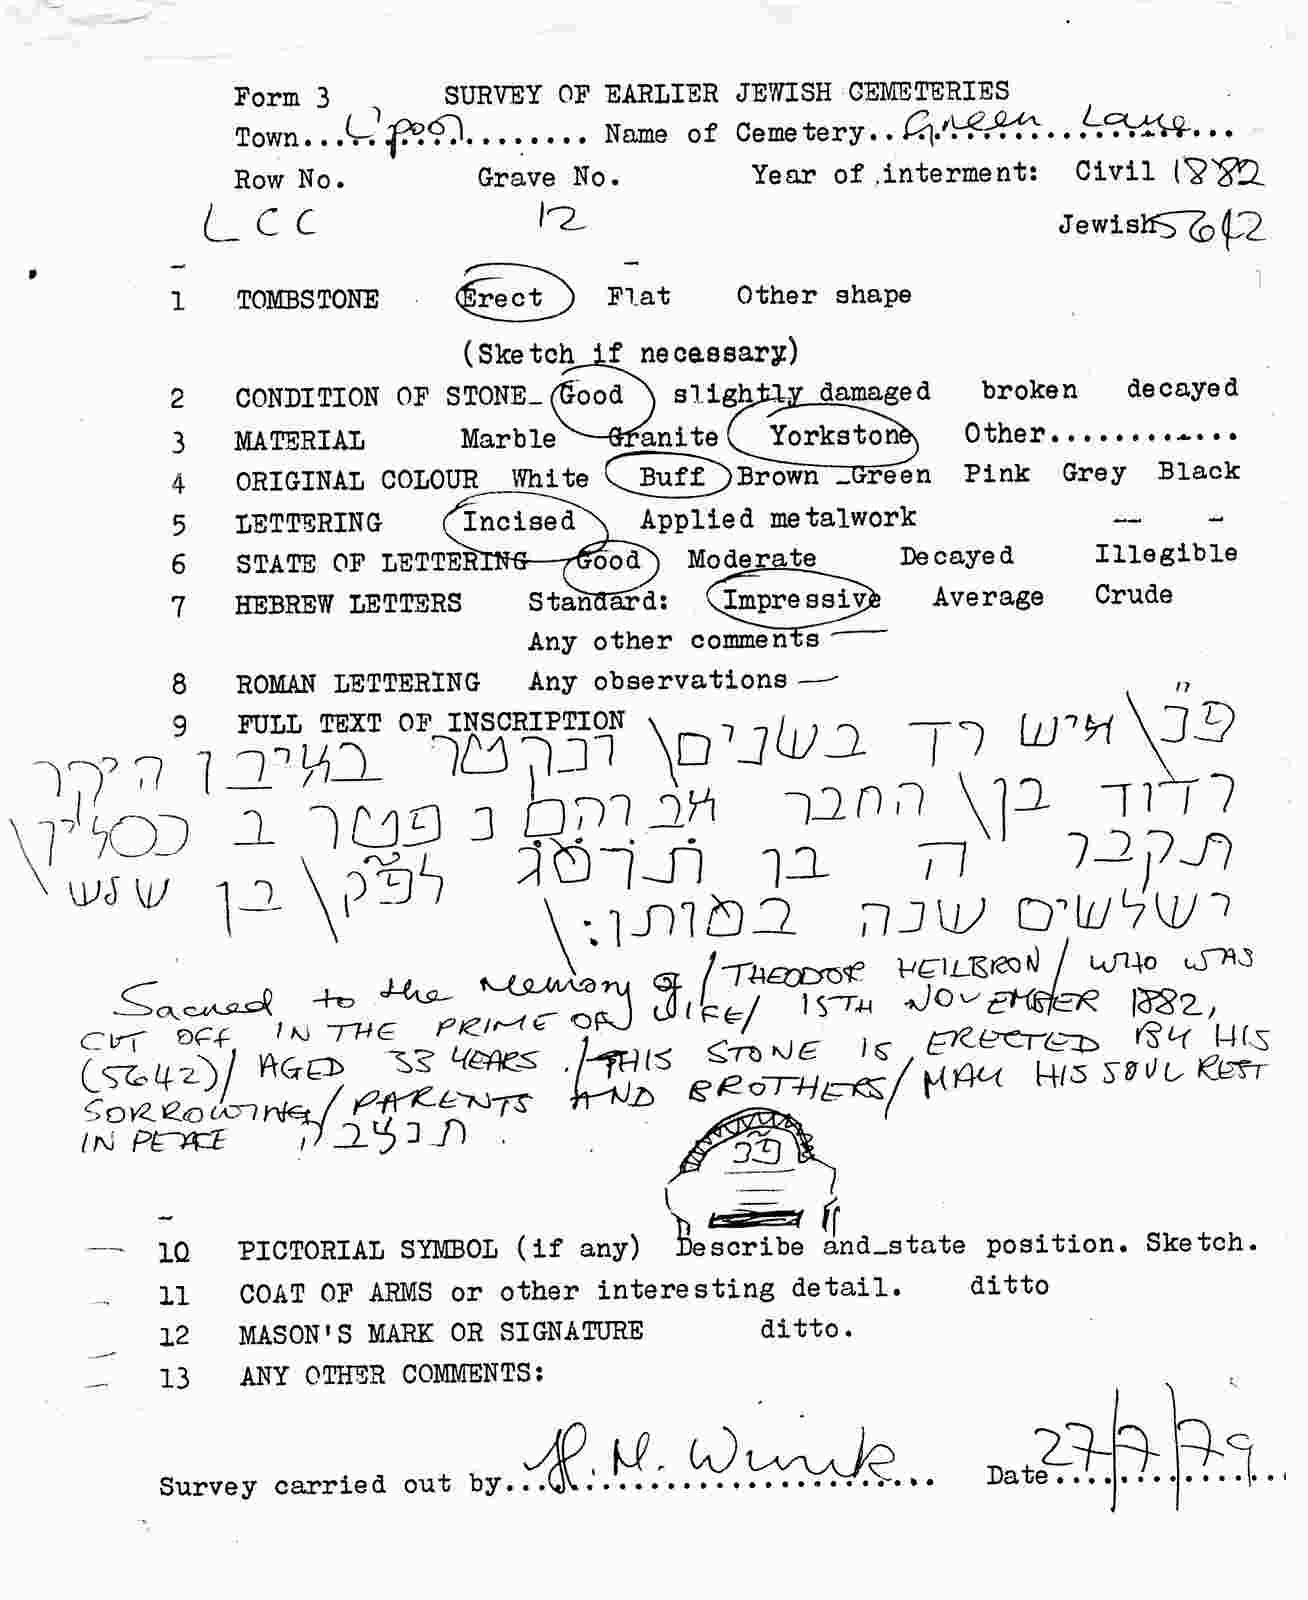 Form 3 SURVEY OF EARLIER JEWISH CEMETERIES
Town...L'pool......... Name of Cemetery...Green Lane...
Row No. Grave No. Year of interment: Civil 1882
LCC 12 Jewish 5642
1 TOMBSTONE Erect Flat Other shape
(Sketch if necessary)
2 CONDITION OF STONE Good slightly damaged broken decayed
3 MATERIAL Marble Granite Yorkstone Other............
4 ORIGINAL COLOUR White Buff Brown Green Pink Grey Black
5 LETTERING Incised Applied metalwork
6 STATE OF LETTERING Good Moderate Decayed Illegible
7 HEBREW LETTERS Standard: Impressive Average Crude
Any other comments —
8 ROMAN LETTERING Any observations —
9 FULL TEXT OF INSCRIPTION
פנ\ איש רד בשנים\ ונקטר באיבו היקר
דוד בן\ החבר אברהם נפטר ב כסליו\
תקבר ה בו תרמג לפק\ בן שלש
ושלשים שנה במותו:\
Sacred to the Memory of / THEODOR HEILBRON / WHO WAS
CUT OFF IN THE PRIME OF LIFE / 15TH NOVEMBER 1882,
(5642) / AGED 33 YEARS. / THIS STONE IS ERECTED BY HIS
SORROWING / PARENTS AND BROTHERS / MAY HIS SOUL REST
IN PEACE תנצבה.
פנ
10 PICTORIAL SYMBOL (if any) Describe and state position. Sketch.
11 COAT OF ARMS or other interesting detail. ditto
12 MASON'S MARK OR SIGNATURE ditto.
13 ANY OTHER COMMENTS:
Survey carried out by...H. M. Wunik... Date 27/7/79